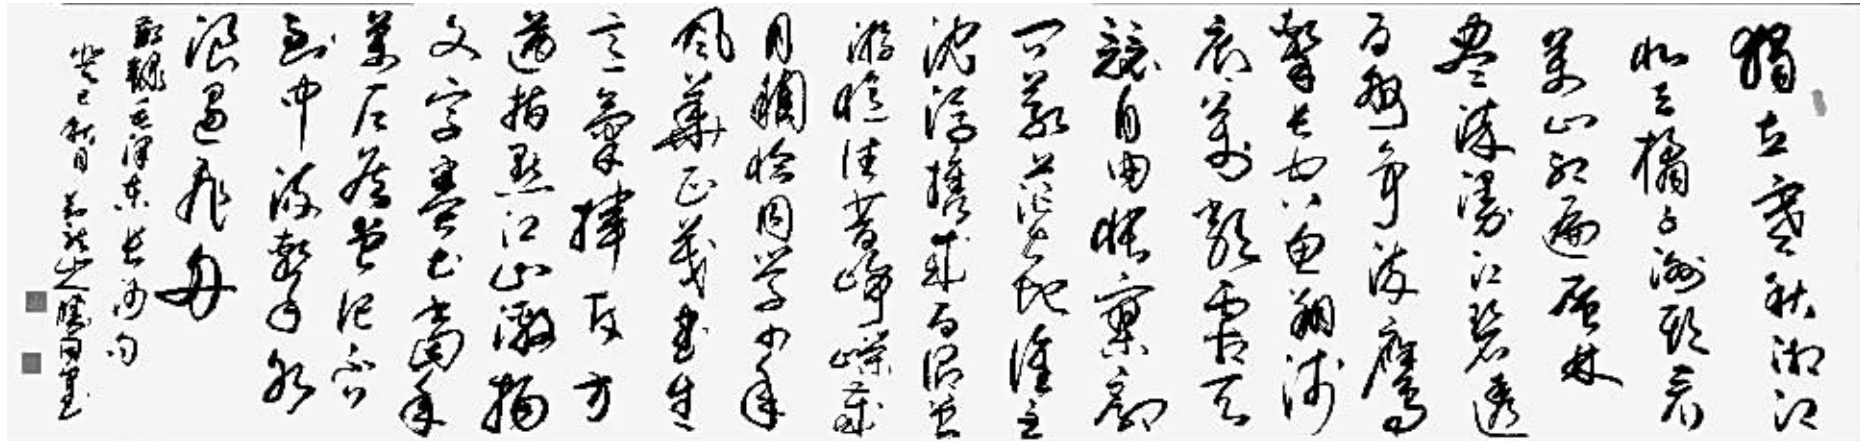 獨立寒秋湘江
北去橘子洲頭看
萬山紅遍層林
盡染漫江碧透
百舸爭流鷹
擊長空魚翔淺
底萬類霜天
競自由悵寥廓
問蒼茫大地誰主
沈浮攜來百侶曾
游憶往昔崢嶸歲
月稠恰同學少年
風華正茂書生
意氣揮斥方
遒指點江山激揚
文字糞土當年
萬戶侯曾記否
到中流擊水
浪遏飛舟
敬錄毛澤東長沙句
癸巳秋月